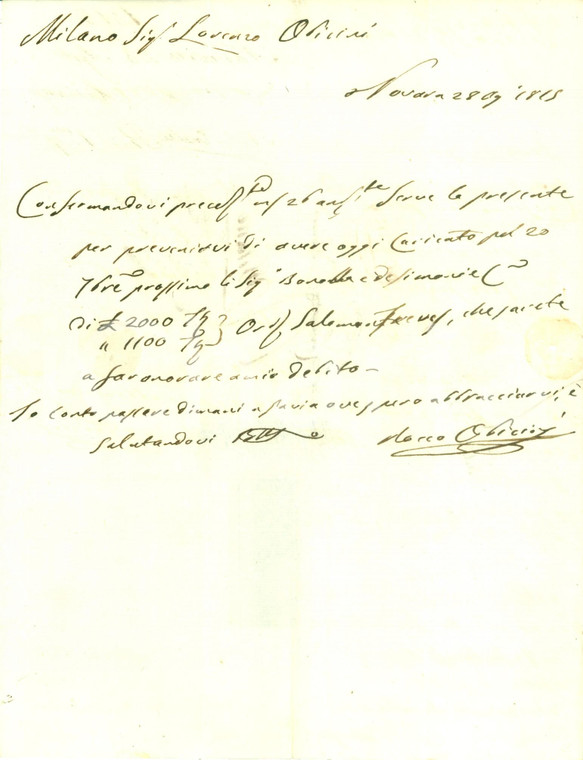 Milano Sig.r Lorenzo Obicini
Novara 28 Ag.o 1815
Confermandovi 26 and.te serve la presente
per prevenirvi di avere oggi caricato pel 20
7bre prossimo li Sig.i Bonolla e Desimoni e C.o
di £ 2000
" 1100 Ord. Salomon Treves, che farete
a far onorare a mio debito –
Io conto passare dimani a Pavia ove spero abbracciarvi, e
salutandovi Rocco Obicini